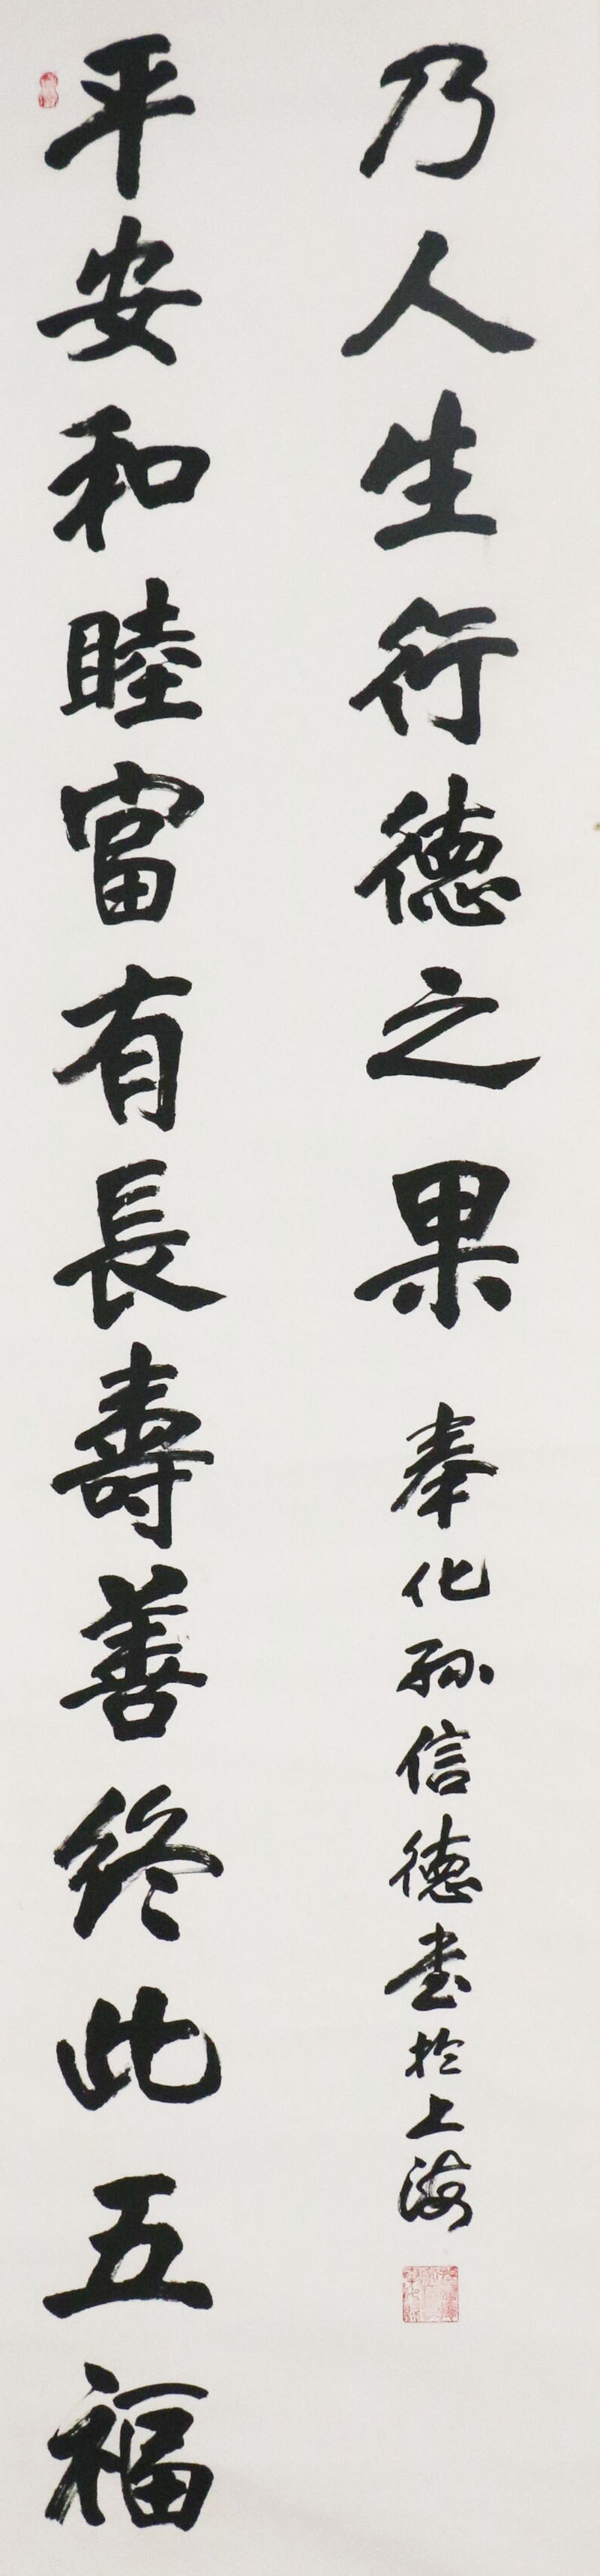 平安和睦富有長壽善終此五福
乃人生行德之果 奉化孫信德書於上海